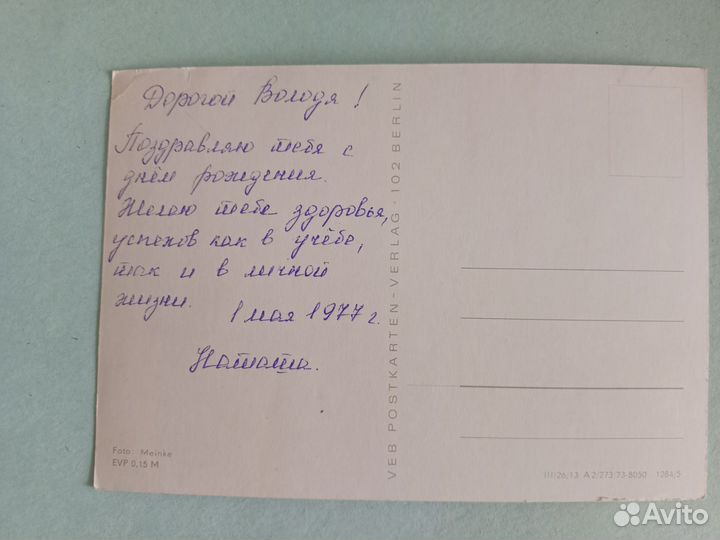 Дорогой Володя!
Поздравляю тебя с
днём рождения.
Желаю тебе здоровья,
успехов как в учёбе,
так и в личной
жизни.
1 мая 1977 г.
Наташа.
Foto: Meinke
EVP 0,15 M
VEB POSTKARTEN-VERLAG · 102 BERLIN
III/26/13 A2/273/73-8050 1284/5
Avito